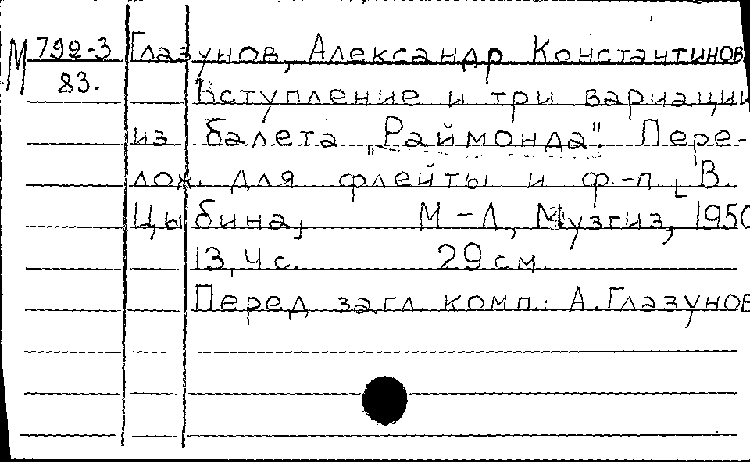 М 792-3 Глазунов, Александр Константинов
83. Вступление и три вариации
из балета "Раймонда". Пере-
лож. для флейты и ф.-п. [В.
Цыбина]. М-Л., Музгиз, 1950
13, 4 с. 29 см.
Перед загл. комп.: А. Глазунов